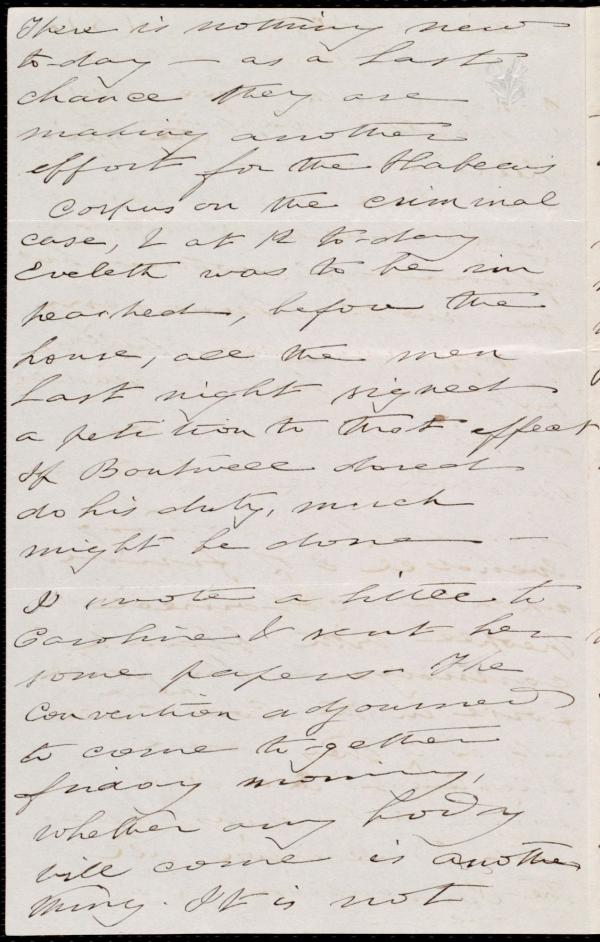 There is nothing new
to-day — as a last
chance they are
making another
effort for the Habeus
Corpus on the criminal
case, & at 12 to-day
Eveleth was to be im
peached, before the
house, all the men
last night signed
a petition to that effect
If Boutwell dared
do his duty, much
might be done —
I wrote a little to
Caroline & sent her
some papers - The
Convention adjourned
to come together
friday morning,
whether any body
will come is another
thing. It is not